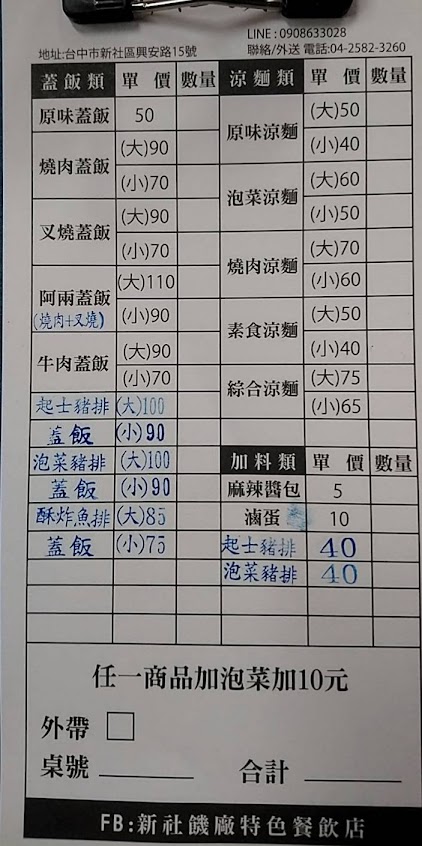 LINE : 0908633028
地址:台中市新社區興安路15號 聯絡/外送 電話:04-2582-3260
蓋飯類 單價 數量
原味蓋飯 50
燒肉蓋飯 (大)90
(小)70
叉燒蓋飯 (大)90
(小)70
阿兩蓋飯 (大)110
(燒肉+叉燒) (小)90
牛肉蓋飯 (大)90
(小)70
起士豬排 (大)100
蓋飯 (小)90
泡菜豬排 (大)100
蓋飯 (小)90
酥炸魚排 (大)85
蓋飯 (小)75
涼麵類 單價 數量
原味涼麵 (大)50
(小)40
泡菜涼麵 (大)60
(小)50
燒肉涼麵 (大)70
(小)60
素食涼麵 (大)50
(小)40
綜合涼麵 (大)75
(小)65
加料類 單價 數量
麻辣醬包 5
滷蛋 10
起士豬排 40
泡菜豬排 40
任一商品加泡菜加10元
外帶
桌號 合計
FB:新社饑廠特色餐飲店